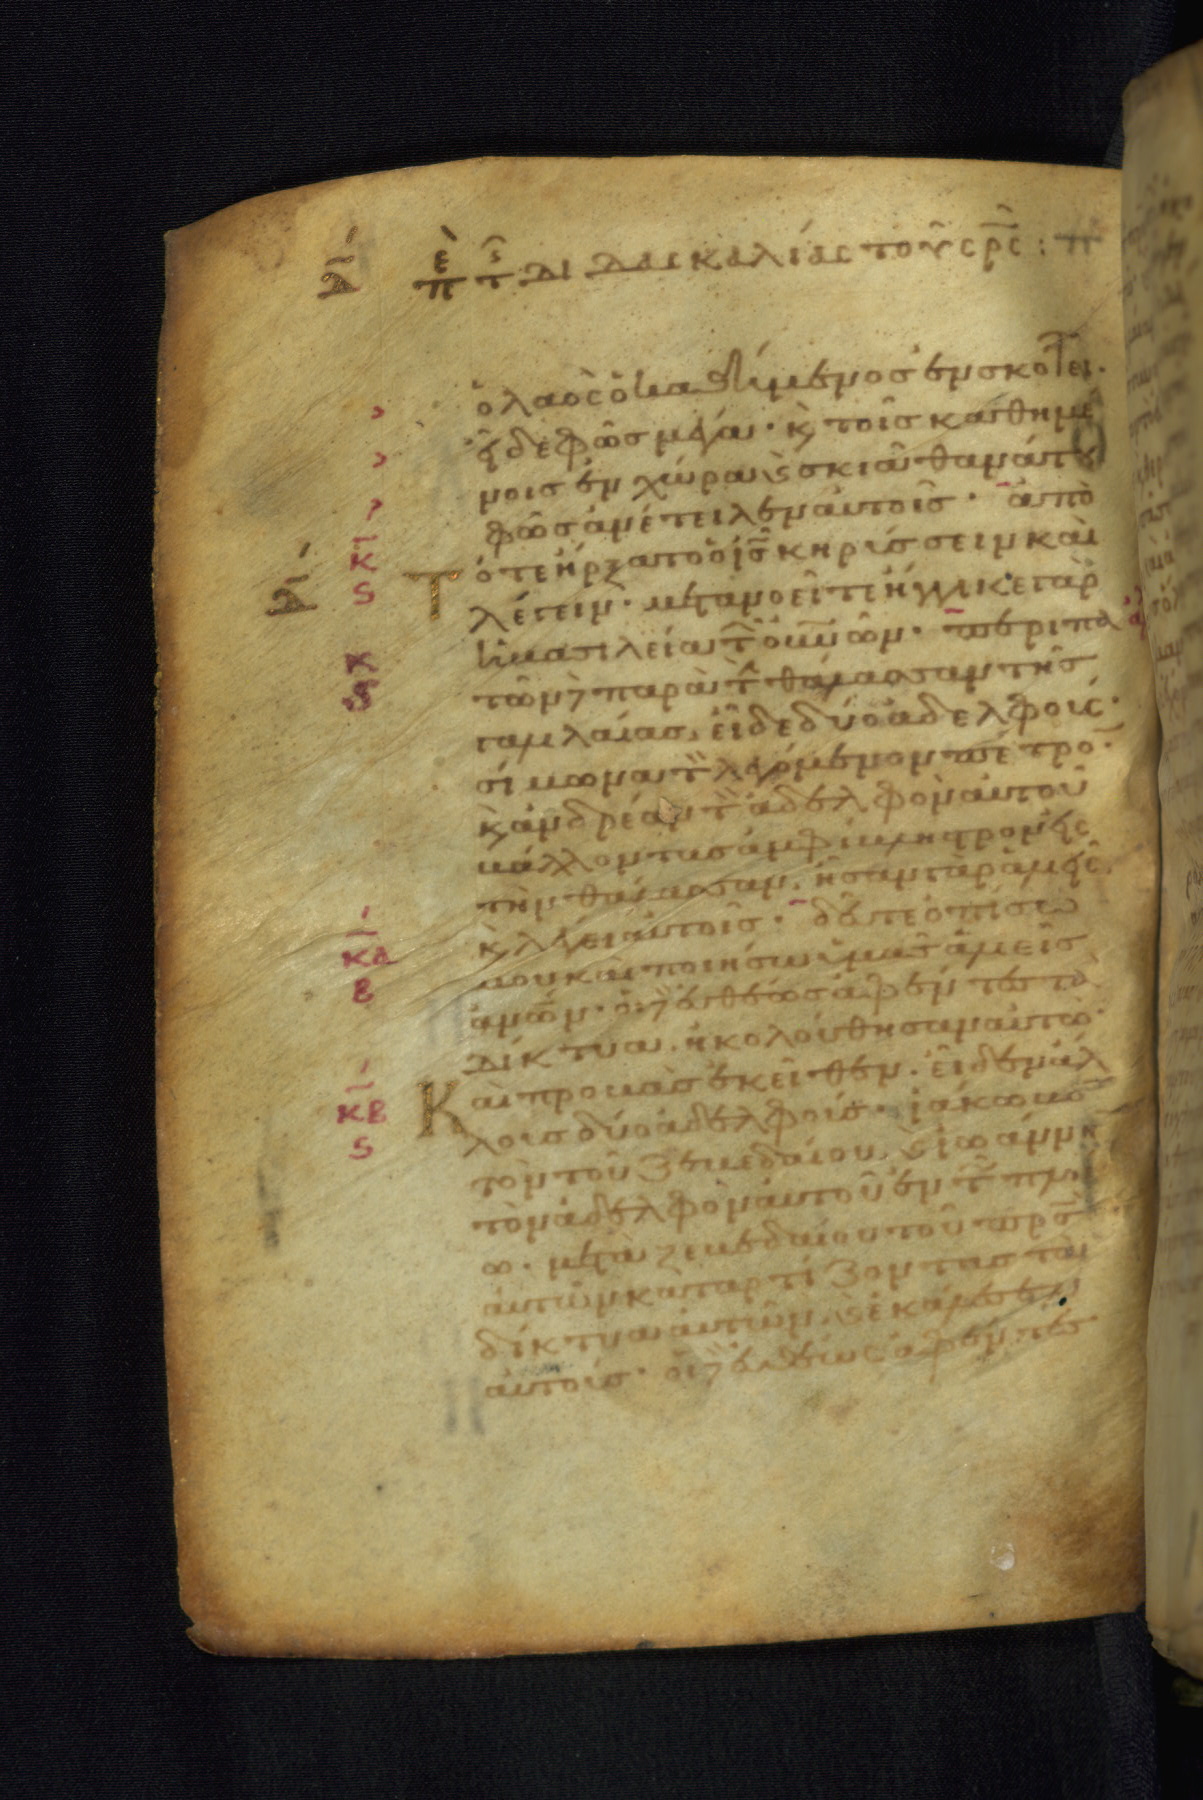 δ̅ ἐπὶ τ̑ διδασκαλίας τοῦ σρ̅ς :
ὁ λαὸς ὁ καθήμενος ἐν σκότει·
εἶδε φῶς μέγα· κ̀ τοῖς καθημέ
νοις ἐν χώρα κ̀ σκιᾶ θανάτου
φῶς ἀνέτειλεν αὐτοῖς· ἀπὸ
Τότε ἤρξατο ὁ ι̅ς̅ κηρύσσειν καὶ
λέγειν· μετανοεῖτε ἤγγικε γὰρ
ἡ βασιλεία τ̑ ο̅υ̅ν̅ῶν· περιπα
τῶν δὲ παρὰ τ̀ θάλασσαν τῆς
γαλιλαίας, εἶδε δύο ἀδελφούς·
σίμωνα τ̀ λεγόμενον πέτρο̅·
κ̀ ἀνδρέαν τ̀ ἀδελφὸν αὐτοῦ
βάλλοντας ἀμφίβληστρον εἰς
τὴν θάλασσαν, ἦσαν γὰρ ἁλιεῖς.
κ̀ λέγει αὐτοῖς· δεῦτε ὀπίσω
μου καὶ ποιήσω ὑμᾶς ἁλιεῖς
ἀν̅ω̅ν· οἱ δὲ εὐθέως ἀφέντες τὰ
δίκτυα, ἠκολούθησαν αὐτῶ·
Καὶ προβὰς ἐκεῖθεν, εἶδεν ἄλ
λους δύο ἀδελφούς· ἰάκωβο̅
τὸν τοῦ ζεβεδαίου, κ̀ ἰωάννη
τὸν ἀδελφὸν αὐτοῦ ἐν τ̑ πλοί
ω· μετὰ ζεβεδαίου τοῦ π̅ρ̅ς̅
αὐτῶν καταρτίζοντας τὰ
δίκτυα αὐτῶν, κ̀ ἐκάλεσεν
αὐτούς· οἱ δὲ εὐθέως ἀφέντες
δ̅
ι̅
κ
ϛ
κ
ϛ
κα
β
κβ
ϛ